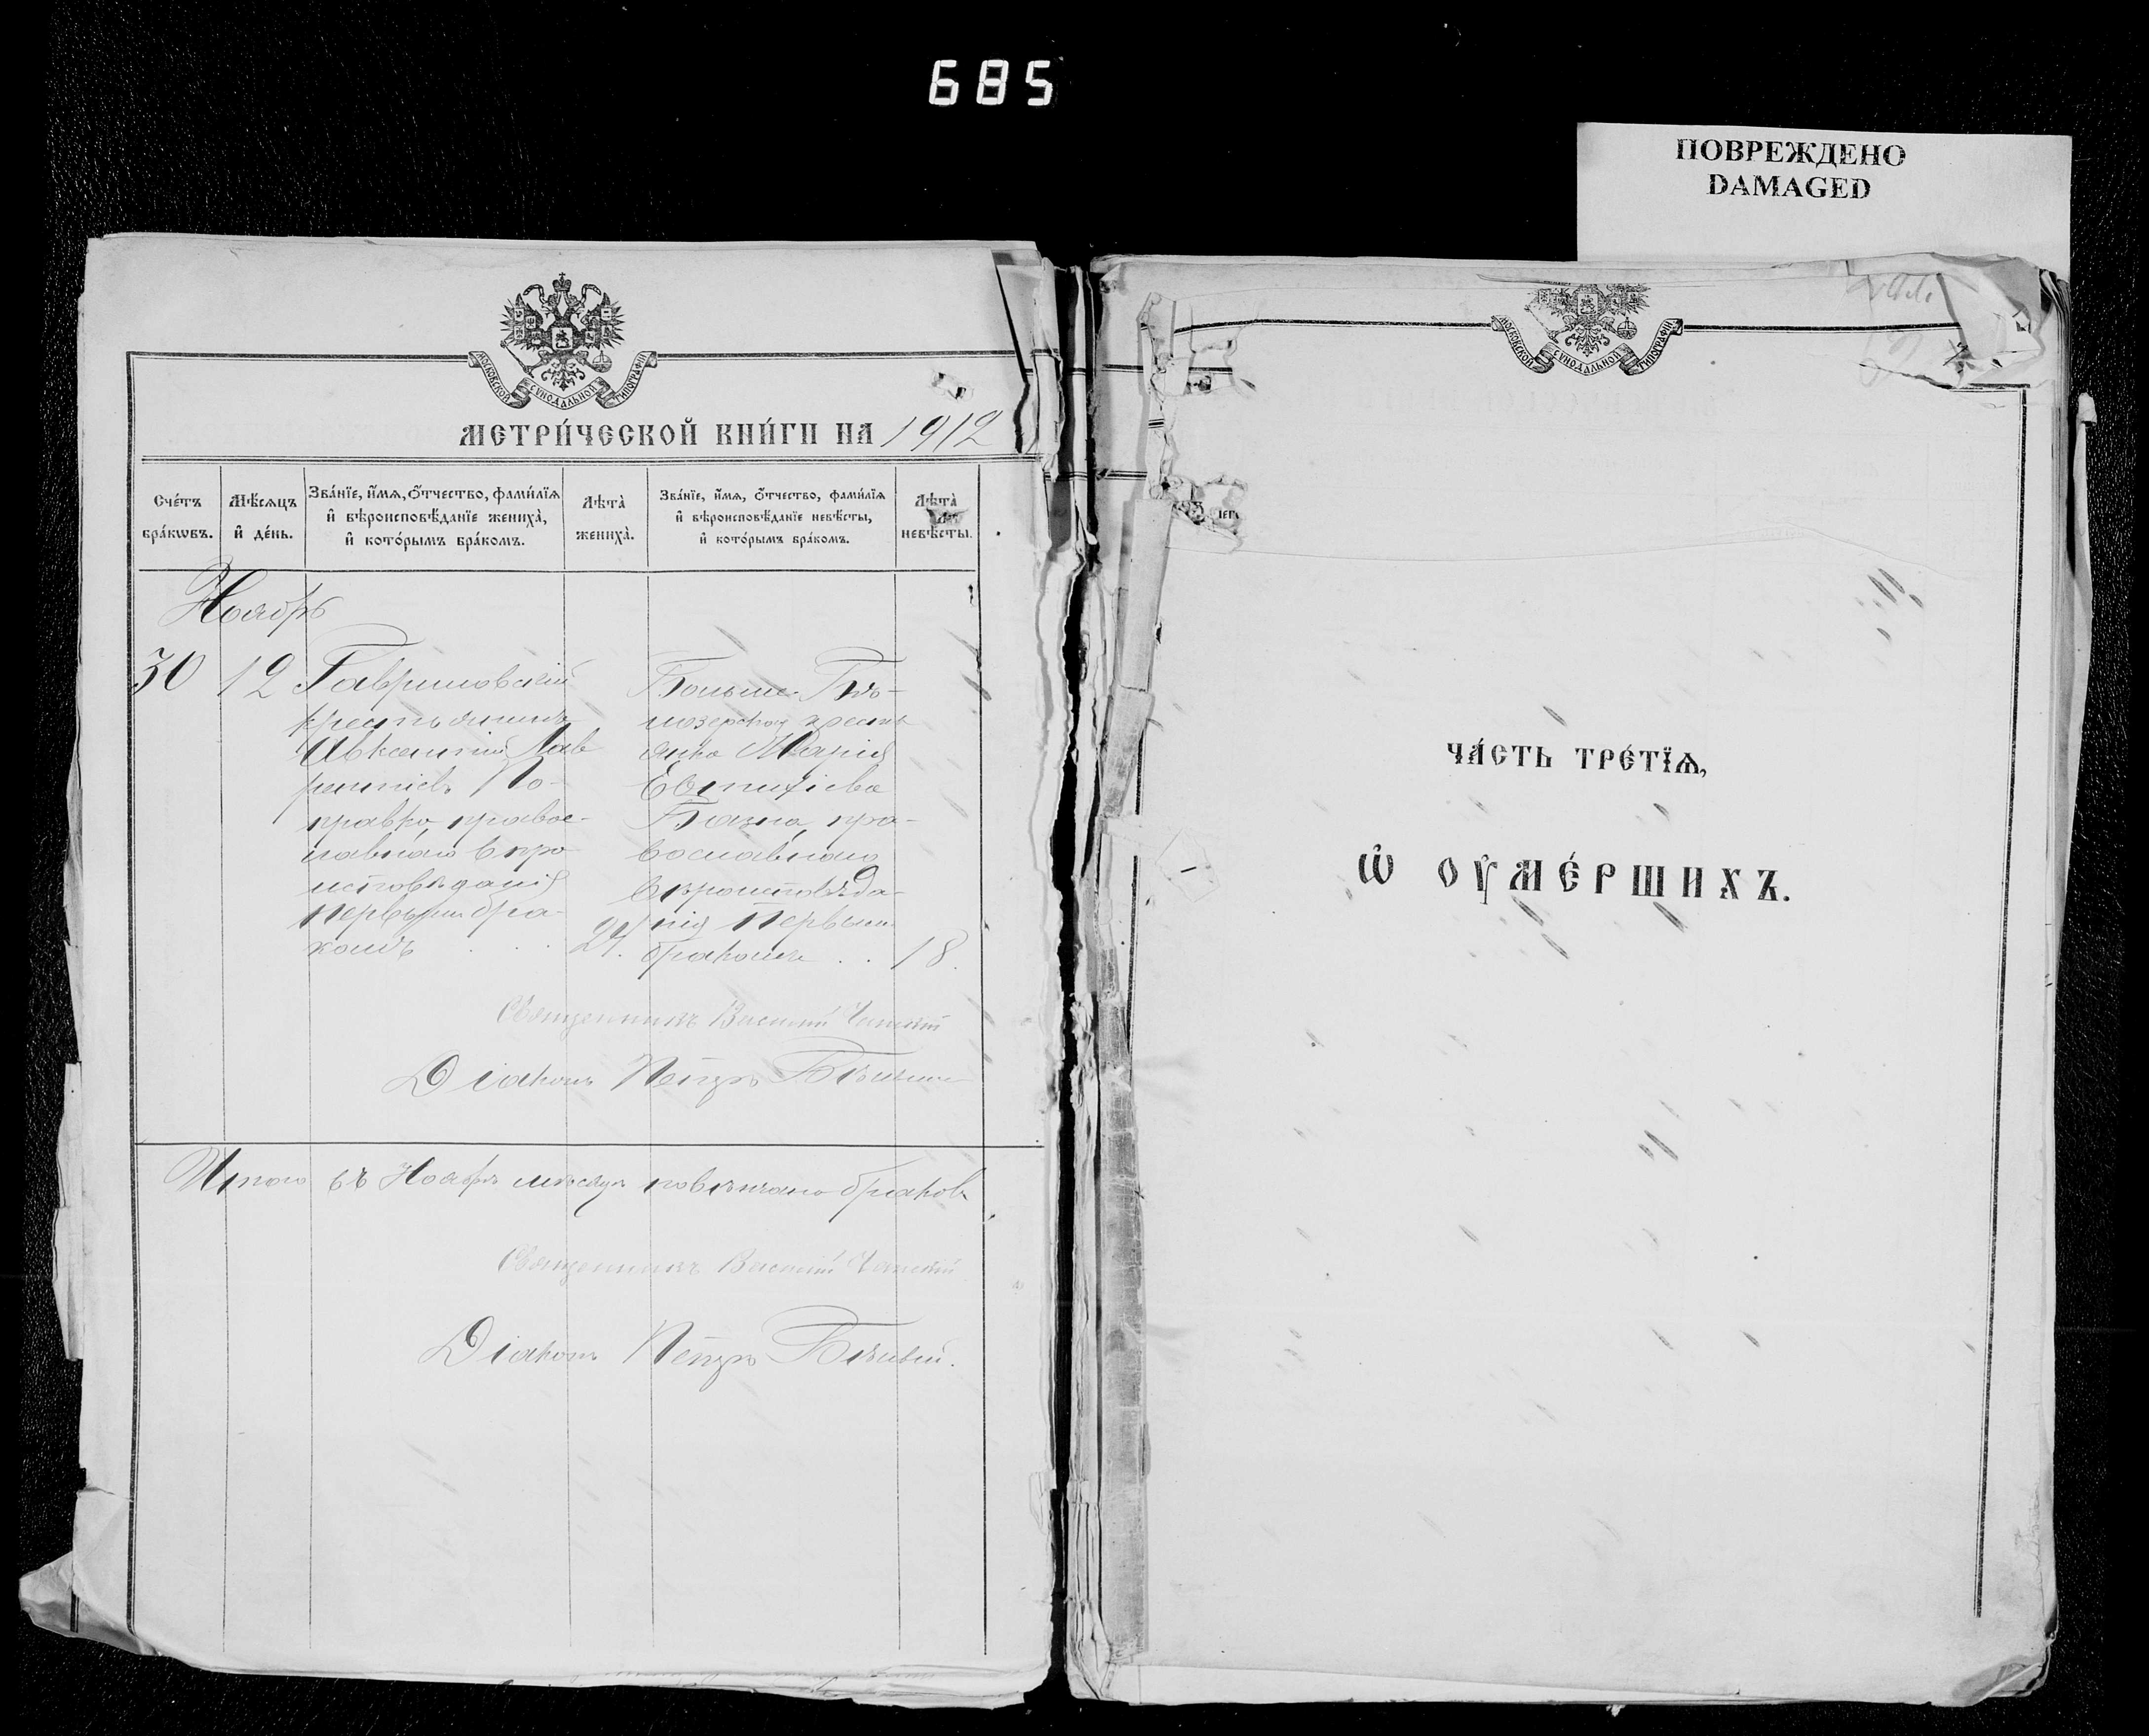 685
ПОВРЕЖДЕНО
DAMAGED
МОСКОВСКОЙ СѴНОДАЛЬНОЙ ТИПОГРАФІИ
МЕТРИ́ЧЕСКОЙ КНИ́ГИ НА 1912
Сче́тъ бра́кωвъ.
Мѣ́сѧцъ и҆ де́нь.
Зва́нїе, и҆́мѧ, ѻ҆́тчество, фами́лїѧ и҆ вѣроисповѣ́данїе жениха̀, и҆ кото́рымъ бра́комъ.
Лѣта̀ жениха̀.
Зва́нїе, и҆́мѧ, ѻ҆́тчество, фами́лїѧ и҆ вѣроисповѣ́данїе невѣ́сты, и҆ кото́рымъ бра́комъ.
Лѣта̀ невѣ́сты.
Ноябрь
30
12
Гавриловскій
крестьянинъ
Авксентій Лав
рентіевъ По-
правко, правос-
лавнаго вѣро
исповѣданія
первымъ бра-
комъ
24.
Больше-Бѣ-
лозерская крестья
янка Марія
Евтихіева
пра-
вославнаго
вѣроисповѣда-
нія первымъ
бракомъ
18.
Священникъ Василій
Діаконъ Петръ
Итого въ Ноябрѣ мѣсяцѣ повѣнчано браковъ
Священникъ Василій
Діаконъ Петръ
МОСКОВСКОЙ СѴНОДАЛЬНОЙ ТИПОГРАФІИ
ЧА́СТЬ ТРЕ́ТЇѦ,
Ѡ҆ ОУ҆МЕ́РШИХЪ.